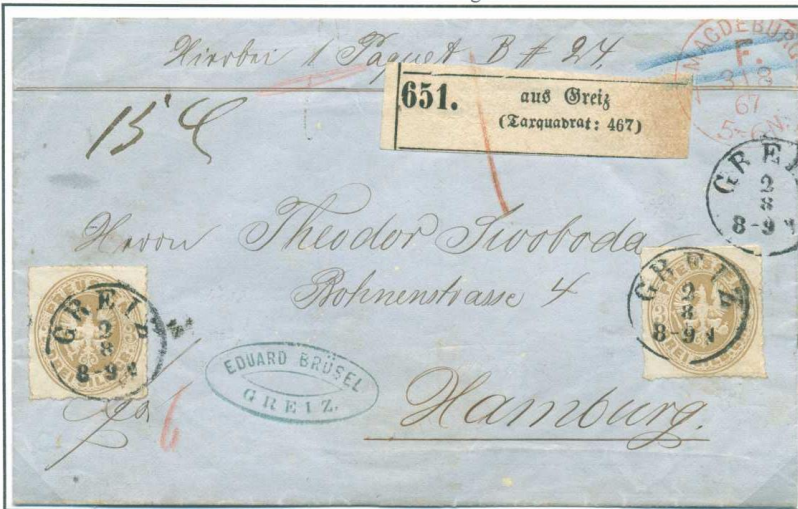 Hierbei 1 Paquet B # 24.
MAGDEBURG
F.
31 8
67
5-6N.
651.
aus Greiz
(Taxquadrat: 467)
15
GREIZ
2
8
8-9 N
Herrn Theodor Swoboda
Bohnenstrasse 4
GREIZ
2
8
8-9 N
GREIZ
2
8
8-9 N
EDUARD BRÜSEL
GREIZ.
6
Hamburg.